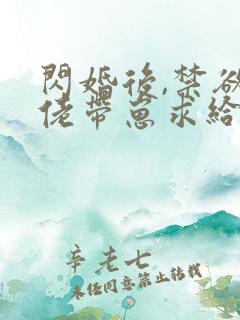 閃婚後,禁欲
佬帶崽求給
辛老七
未经同意禁止转载